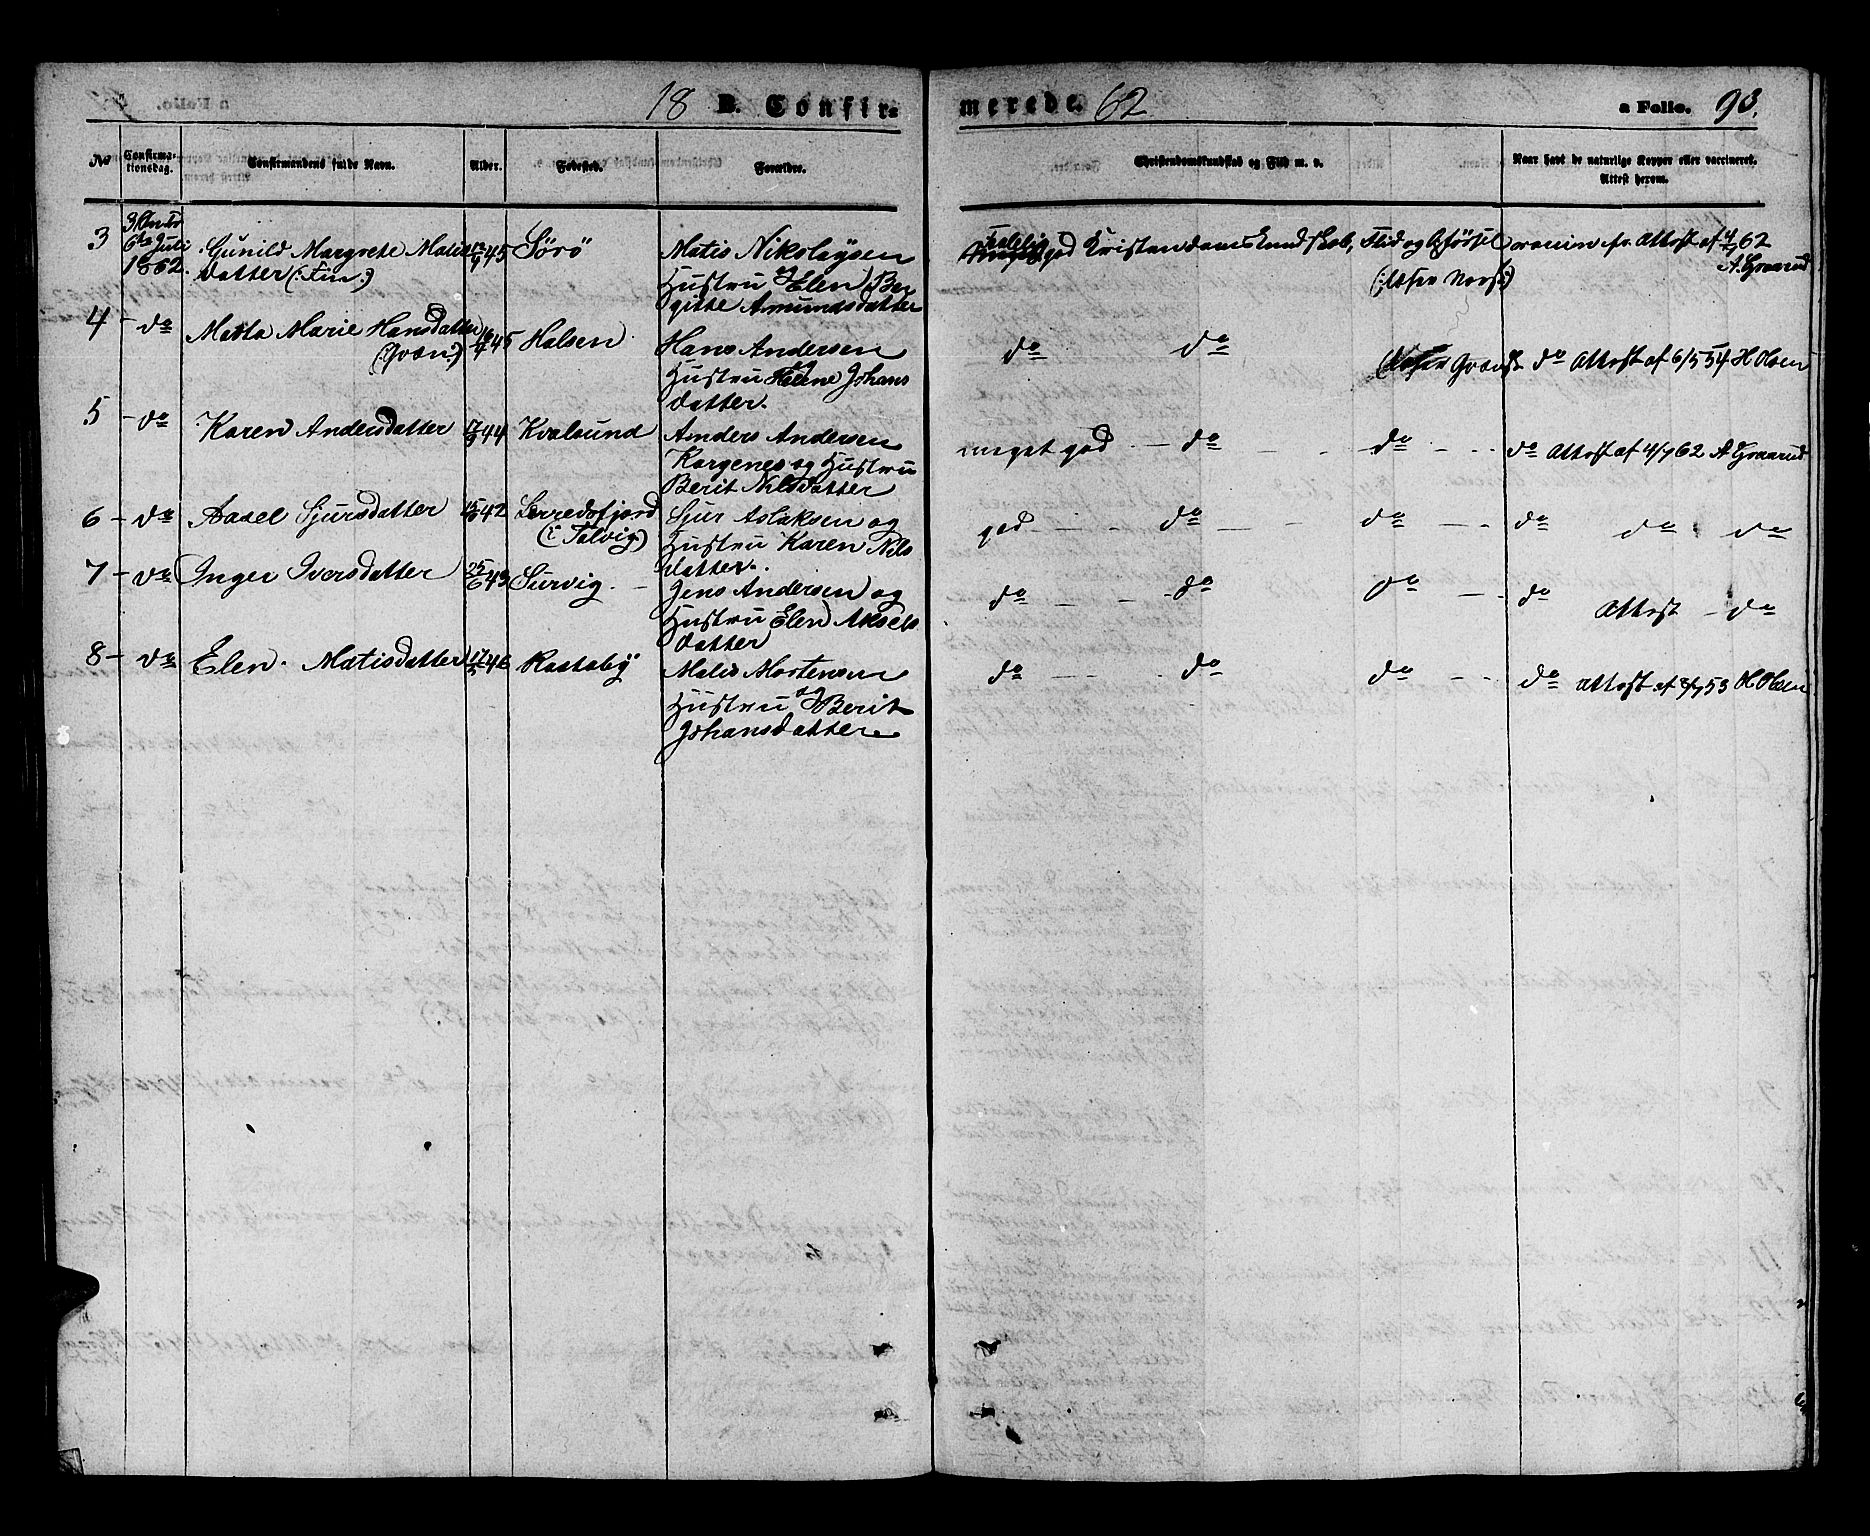 18 B. Confir-
merede. 62
a Folio. 93.
No
Confirma-
tionsdag.
Confirmandens fulde Navn.
Alder.
Fødested.
Forældre.
Christendomskundskab og Flid m. v.
Naar havt de naturlige Kopper eller vaccineret.
Attest herom.
3
6te Juli
1862.
Gunild Margrete Matis
datter (: Fin:)
45
Sørø
Matis Nikolaysen
og
Hustru Elen Ber
gitte Amundsdatter
Temlig
god Kristendomskundskab, Flid og Opførsel
(: læser Norsk:)
vaccin. fr. Attest af 4/7 62
A. Graarud
4 - do
Metta Marie Hansdatter
(: Qvæn:)
45
Halsen
Hans Andersen
og
Hustru Helene Johans
datter.
do do
(læser Qvænsk
do Attest af 6/5 54 H Olsen
5 - do
Karen Andersdatter
44
Kvalsund
Anders Andersen
Kargenes og Hustru
Berit Nilsdatter
meget god - do - - do - -
do Attest af 4/7 62 A Graarud
6 - do
Aasel Sjursdatter
42
Lerredsfjord
(i Talvig)
Sjur Aslaksen og
Hustru Karen Nils
datter.
god - - do - - do - -
do do do
7 - do
Inger Iversdatter
25/6 43
Survig. -
Jens Andersen og
Hustru Elen Aksels
datter
do - - do do - -
do Attest - do
8 - do
Elen Matisdatter
46
Rastaby
Matis Mortensen
og
Hustru Berit
Johansdatter
do - - do do - -
do attest af 3/7 53 H Olsen